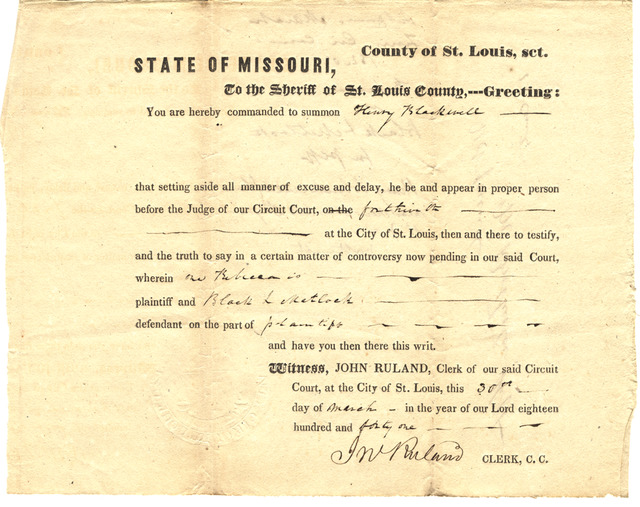 County of St. Louis, sct.
STATE OF MISSOURI,
To the Sheriff of St. Louis County,---Greeting:
You are hereby commanded to summon Henry Blackwell
that setting aside all manner of excuse and delay, he be and appear in proper person
before the Judge of our Circuit Court, on the forthwith
at the City of St. Louis, then and there to testify,
and the truth to say in a certain matter of controversy now pending in our said Court,
wherein one Rebecca is
plaintiff and Black & Matlock
defendant on the part of plaintiff
and have you then there this writ.
Witness, JOHN RULAND, Clerk of our said Circuit
Court, at the City of St. Louis, this 30th
day of March in the year of our Lord eighteen
hundred and forty one
Jn Ruland CLERK, C. C.